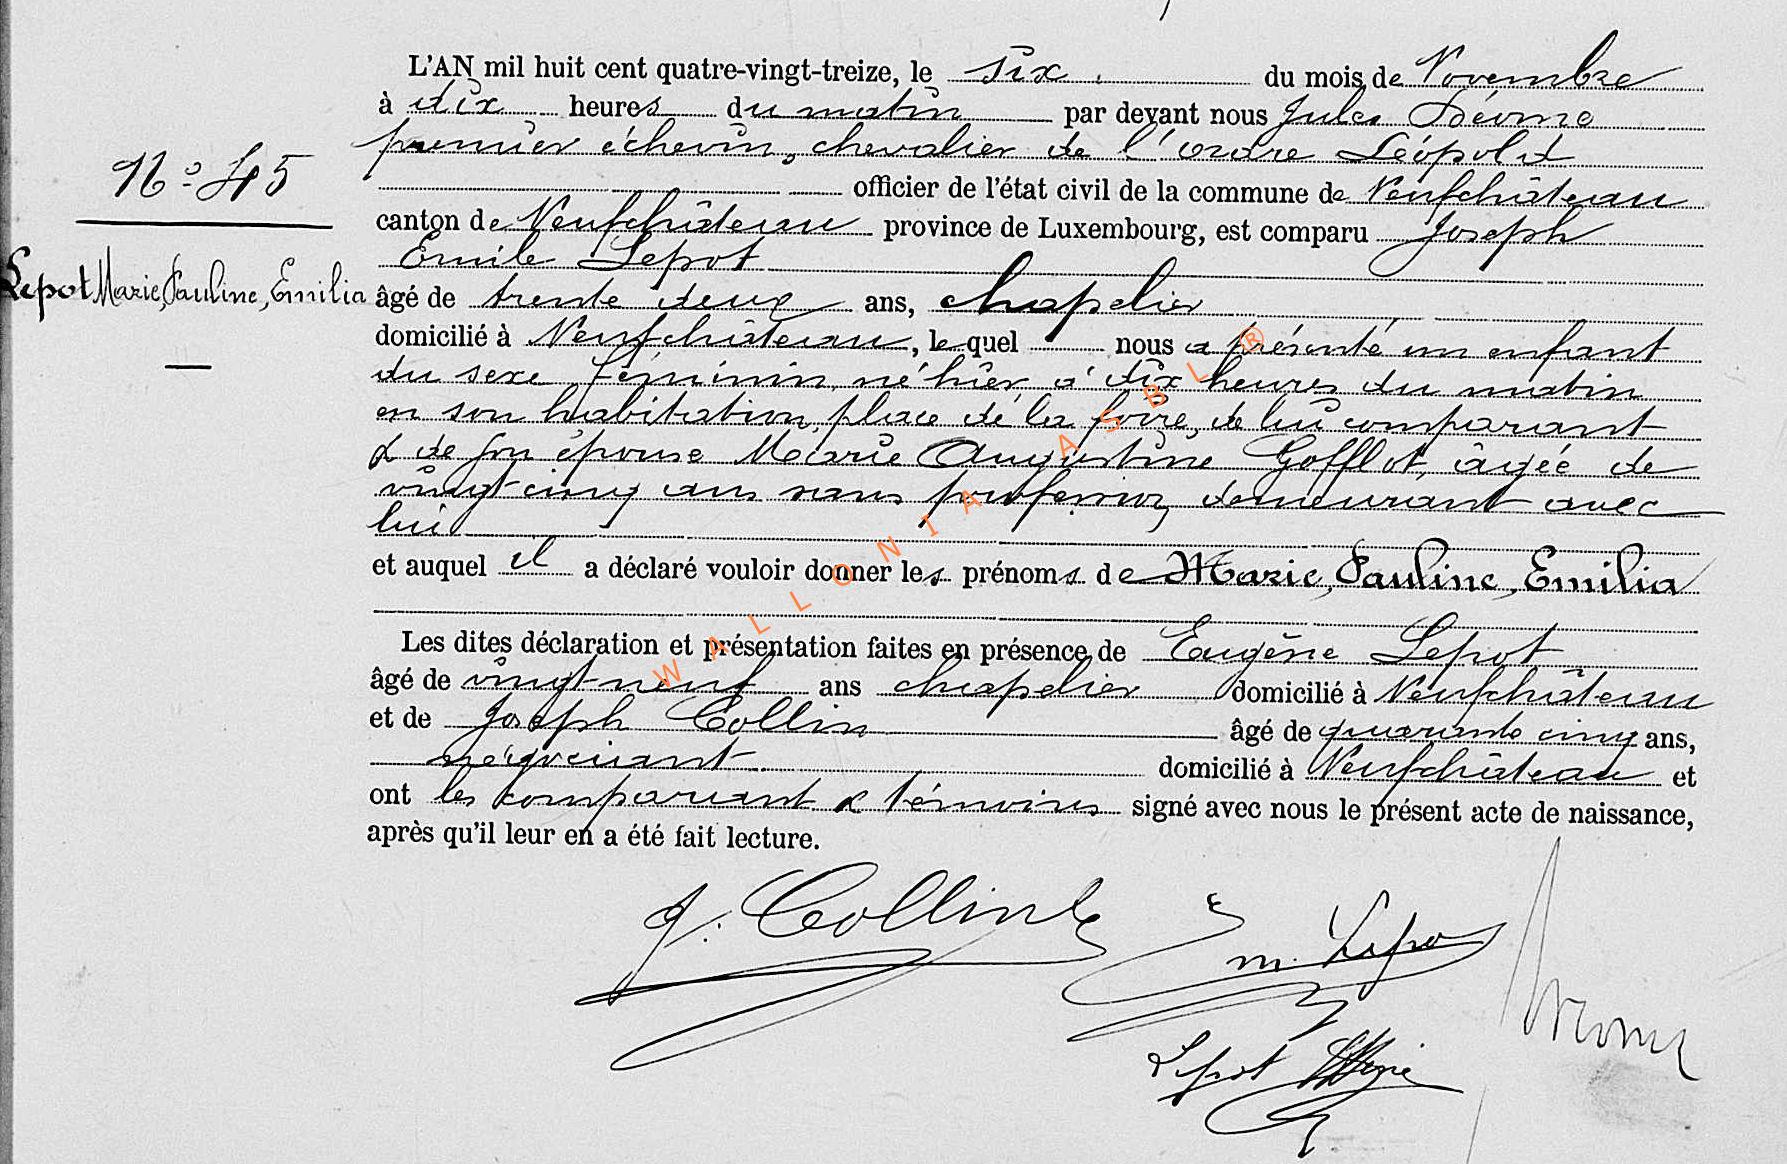 L'AN mil huit cent quatre-vingt-treize, le six du mois de Novembre
à dix heures du matin par devant nous Jules
premier échevin, chevalier de l'ordre Léopold
N° 45
officier de l'état civil de la commune de Neufchâteau
canton de Neufchâteau province de Luxembourg, est comparu Joseph
Emile Lepot
Lepot Marie, Pauline, Emilia
âgé de trente deux ans, chapelier
domicilié à Neufchâteau, lequel nous a présenté un enfant
du sexe féminin, né hier à dix heures du matin
en son habitation, place de la foire, de lui comparant
& de son épouse Marie Augustine Gofflot, âgée de
vingt cinq ans sans profession, demeurant avec
lui
et auquel il a déclaré vouloir donner les prénoms de Marie, Pauline, Emilia
Les dites déclaration et présentation faites en présence de Eugène Lepot
âgé de vingt neuf ans chapelier domicilié à Neufchâteau
et de Joseph Collin âgé de quarante cinq ans,
négociant domicilié à Neufchâteau et
ont les comparant & témoins signé avec nous le présent acte de naissance,
après qu'il leur en a été fait lecture.
WALLONIA ASBL ®
J. Collin
Em. Lepot
Lepot